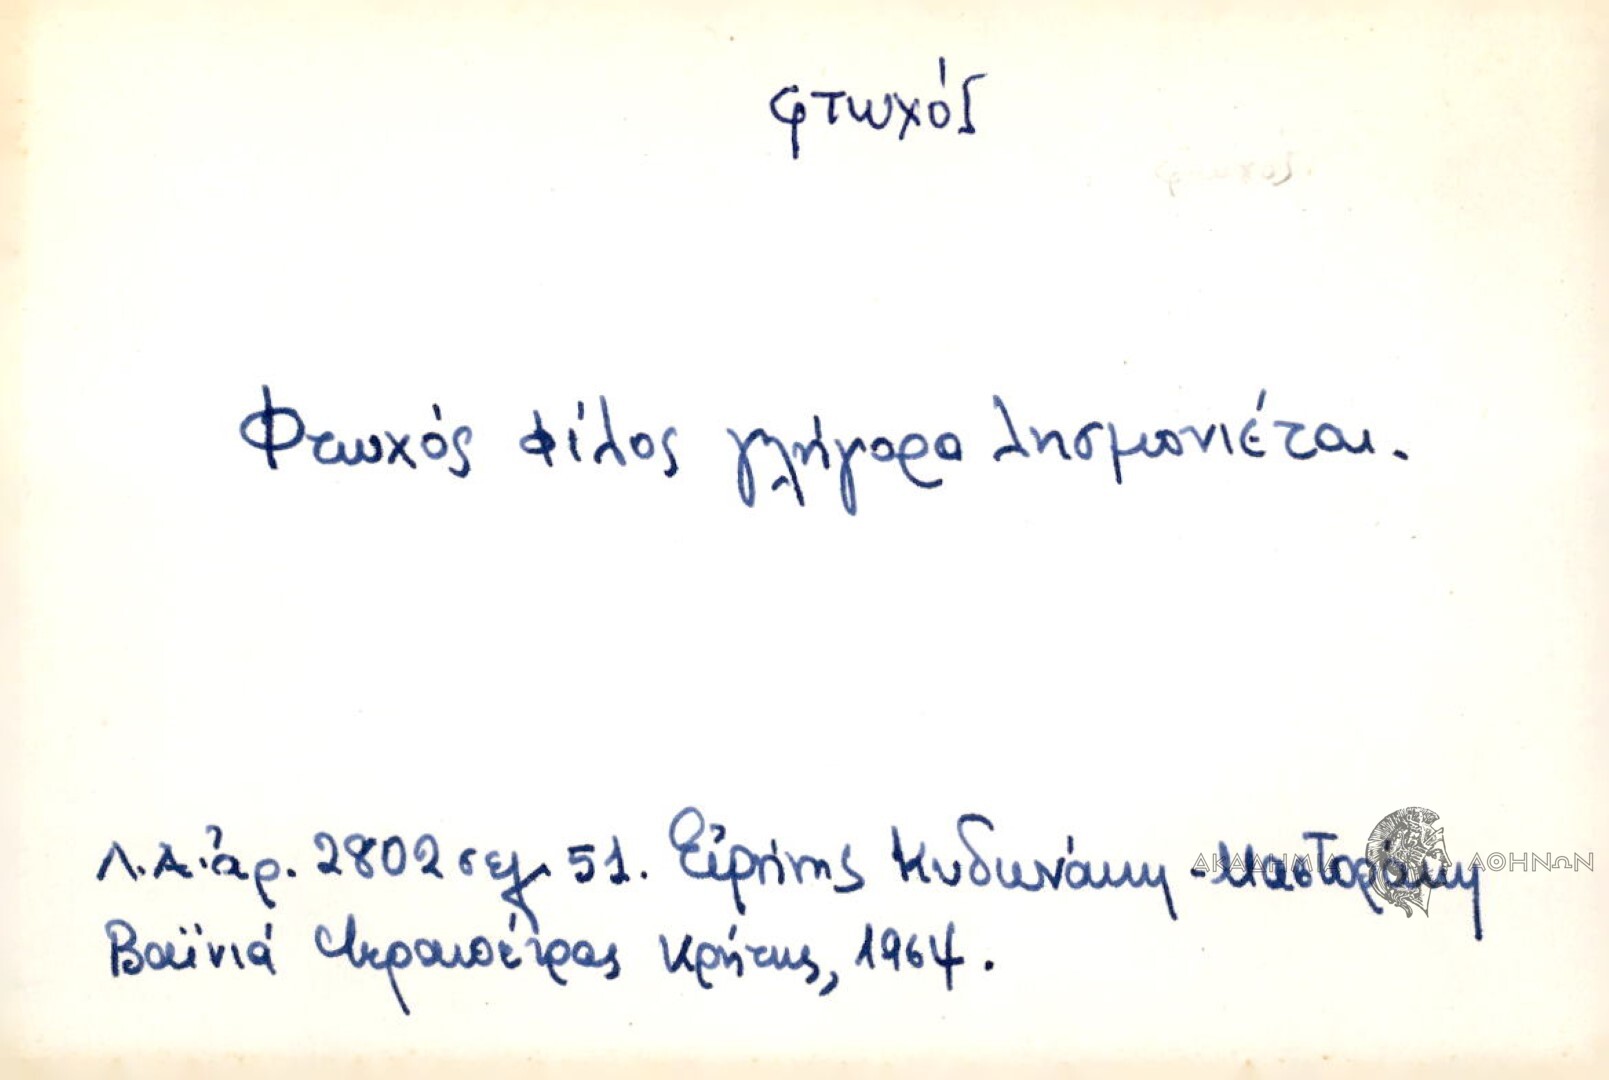 φτωχός
Φτωχός φίλος γλήγορα λησμονιέται.
Λ.Α. ἀρ. 2802 σελ. 51. Εἰρήνης Κυδωνάκη - Μαστοράκη
Βαϊνιά Ἱεραπέτρας Κρήτης, 1964.
ΑΚΑΔΗΜΙΑ ΑΘΗΝΩΝ